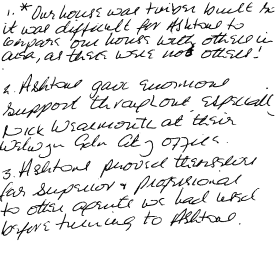 1. * Our house was timber built so
it was difficult for Ashtons to
compare our house with others in
area, as there were not others!
2. Ashtons gave enormous
support throughout, especially
Nick Wearmouth at their
Welwyn Gdn City office.
3. Ashtons proved themselves
far superior & professional
to other agents we had used
before turning to Ashtons.